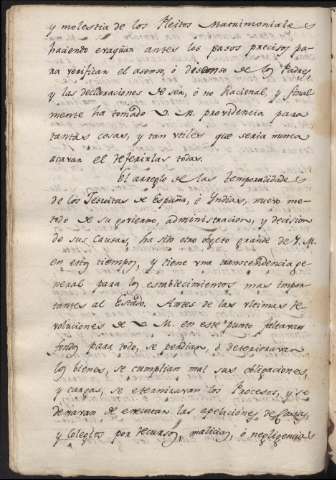 y molestia de los Pleitos Matrimoniales
haciendo evaquar antes los pasos precisos pa-
ra verificar el asenso, ó disenso de los Padres
y las declaraciones de ser, ó no Racional, y final
mente ha tomado V. M. providencia para
tantas cosas, y tan utiles que seria nunca
acavar el referirlas todas.
El arreglo de las temporalidades
de los Jesuitas de España, é Yndias, nuevo me-
todo de su govierno, administracion, y decision
de sus Causas, ha sido otro objeto grande de V. M.
en estos tiempos, y tiene una transcendencia ge-
neral para los establecimientos mas impor-
tantes al Estado. Antes de las ultimas Re-
soluciones de V. M. en este punto faltavan
fondos para todo, se perdian, ó deterioravan
los bienes, se cumplian mal sus obligaciones,
y cargas, se eternizavan los Procesos, y se
dejavan de executar las aplicaciones, de Casas,
y Colegios por descuido, malicia, ó negligencia